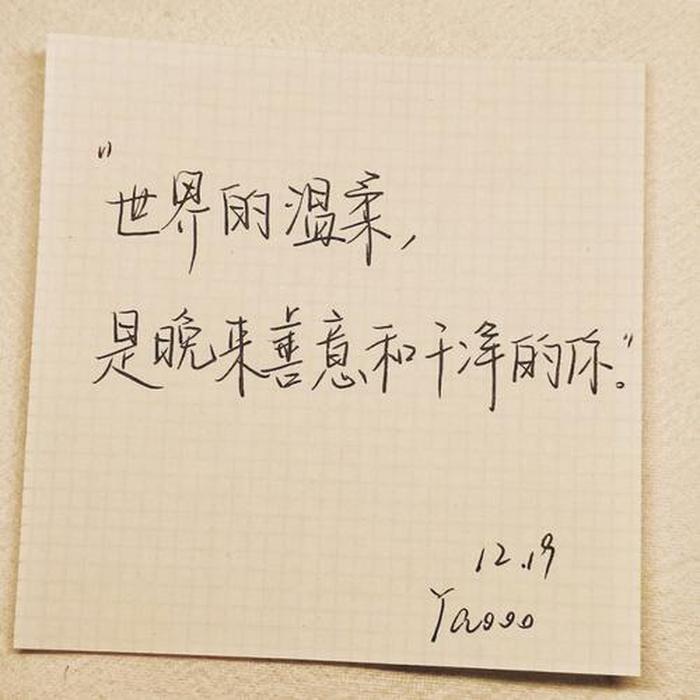 "世界的温柔,
是晚来善意和干净的你"。
12.19
Yaooo